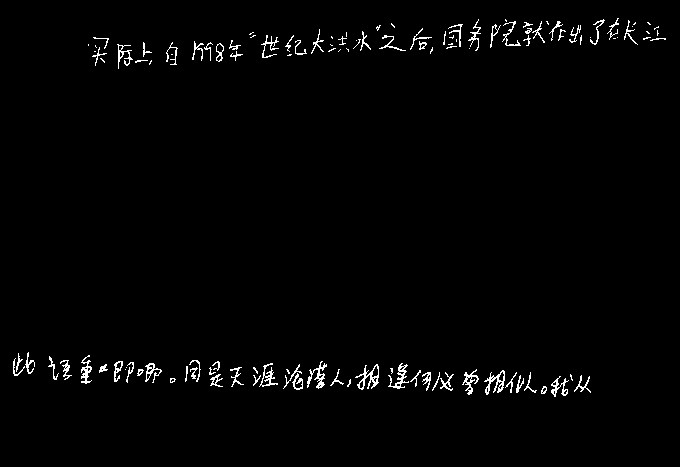 实际上自1998年“世纪大洪水”之后,国务院就作出了在长江
此语重“即唧。同是天涯沦落人,相逢何必曾相似。我从